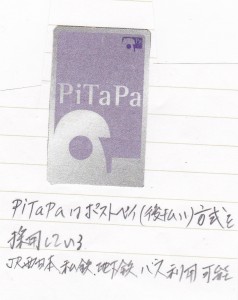 PiTaPa
PiTaPaはポストペイ(後払い)方式を
採用している
JR西日本、私鉄、地下鉄、バス利用可能